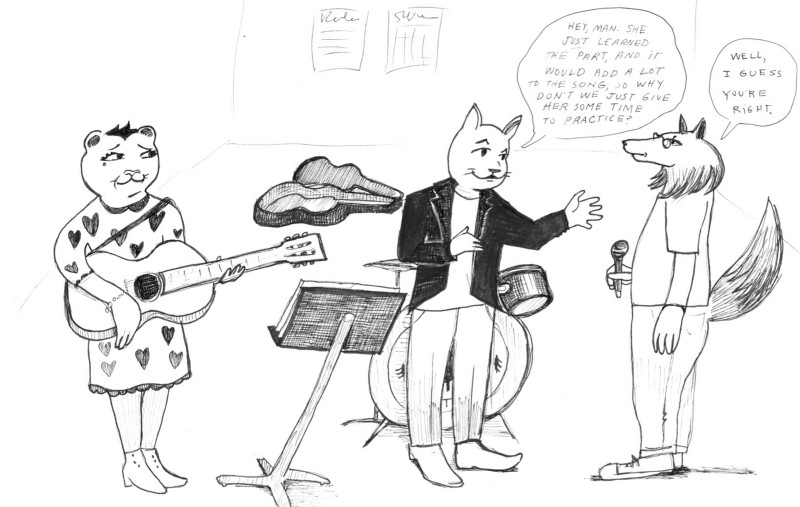 Rules
HEY, MAN. SHE
JUST LEARNED
THE PART, AND IT
WOULD ADD A LOT
TO THE SONG, SO WHY
DON'T WE JUST GIVE
HER SOME TIME
TO PRACTICE?
WELL,
I GUESS
YOU'RE
RIGHT.